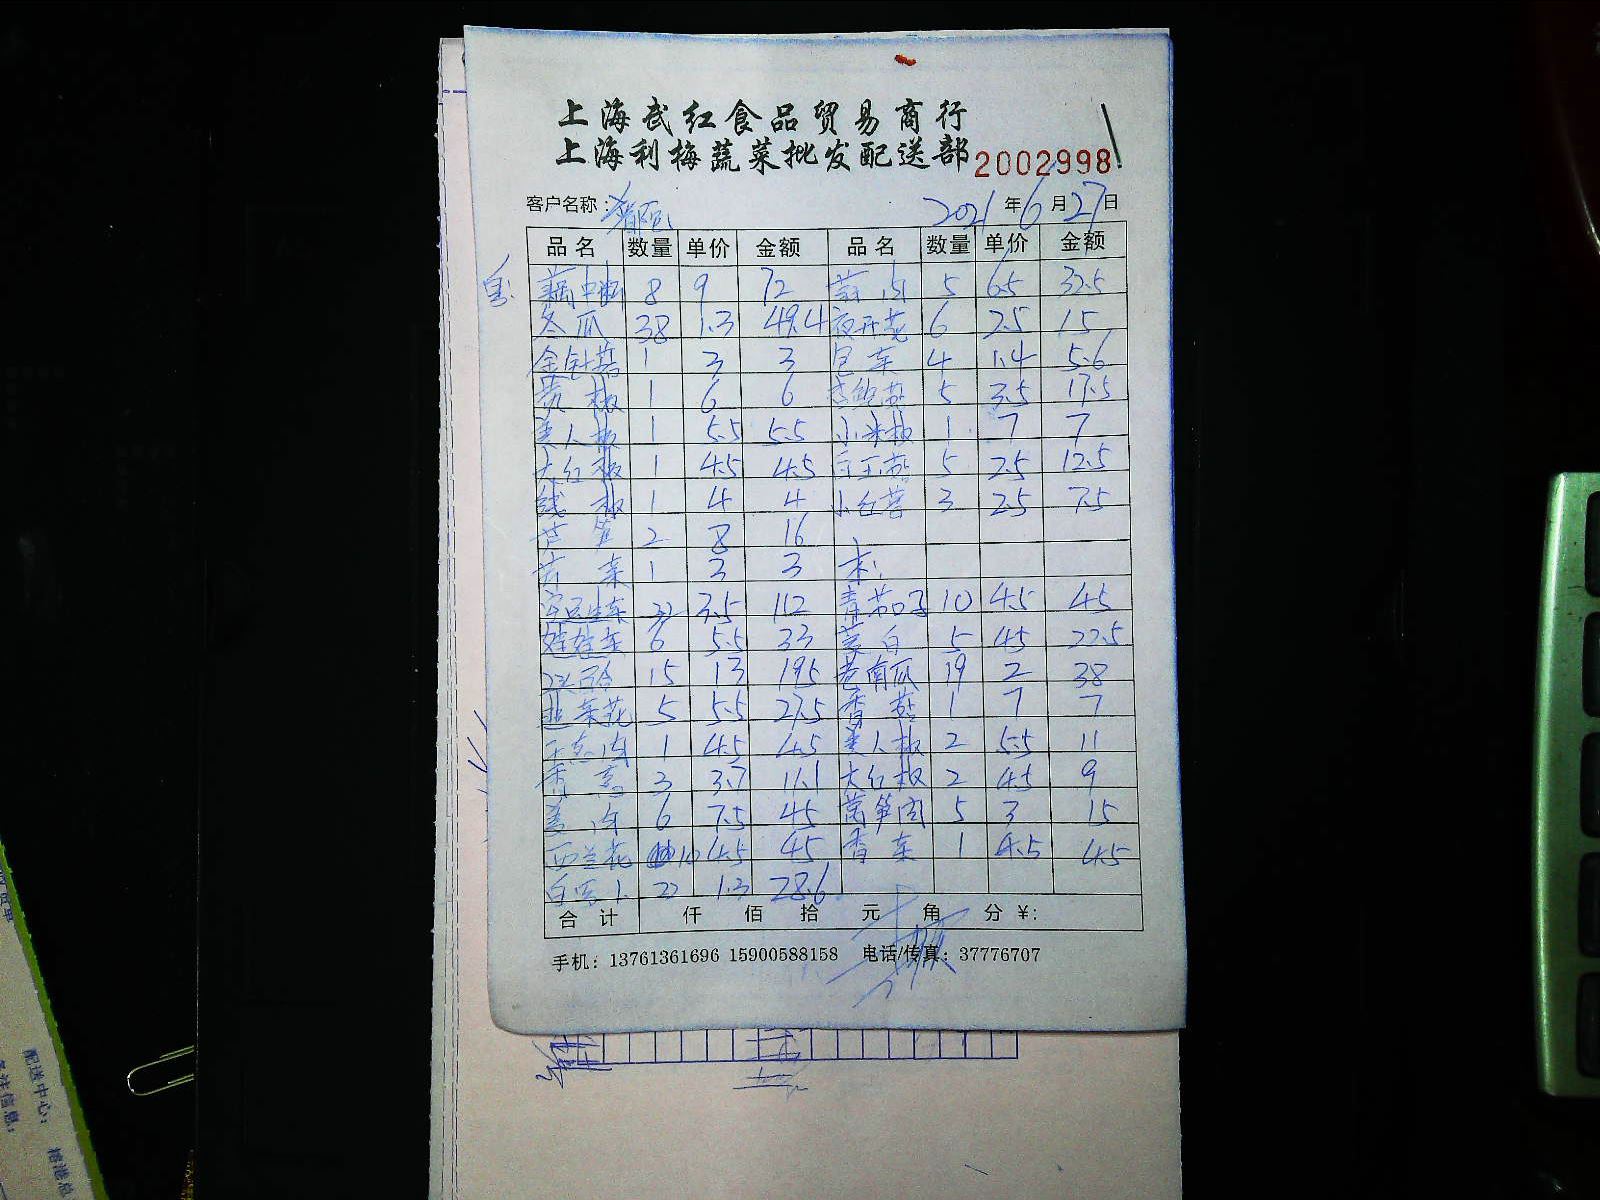 上海武红食品贸易商行
上海利梅蔬菜批发配送部 2002998
客户名称： 2021年6月27日
品名 数量 单价 金额 品名 数量 单价 金额
8 9 72 蒜肉 5 6.5 32.5
冬瓜 38 1.3 49.4 夜开花 6 2.5 15
金针菇 1 3 3 包菜 4 1.4 5.6
黄椒 1 6 6 杏鲍菇 5 3.5 17.5
美人椒 1 5.5 5.5 小米椒 1 7 7
大红椒 1 4.5 4.5 白玉菇 5 2.5 12.5
线椒 1 4 4 3 2.5 7.5
芦笋 2 8 16
芹菜 1 3 3 本:
生菜 32 3.5 112 青茄子 10 4.5 45
娃娃菜 6 5.5 33 茭白 5 4.5 22.5
15 13 195 老南瓜 19 2 38
韭菜花 5 5.5 27.5 香菇 1 7 7
1 4.5 4.5 美人椒 2 5.5 11
香葱 3 3.7 11.1 大红椒 2 4.5 9
姜肉 6 7.5 45 莴笋肉 5 3 15
西兰花 10 4.5 45 香菜 1 4.5 4.5
22 1.3 28.6
合计 仟 佰 拾 元 角 分 ¥:
手机：13761361696 15900588158 电话/传真：37776707
配送中心：